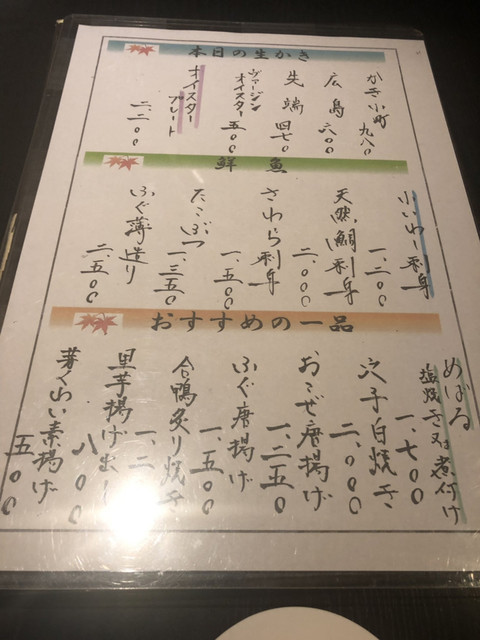 本日の生かき
かき小町 九八〇
広島 六〇〇
先端 四七〇
ヴァージンオイスター 五〇〇
オイスタープレート 二、二〇〇
鮮魚
小いわし刺身 一、二〇〇
天然鯛刺身 二、〇〇〇
さわら刺身 一、五〇〇
たこぶつ 一、三五〇
ふぐ薄造り 二、五〇〇
おすすめの一品
めばる
塩焼き又は煮付け 一、七〇〇
穴子白焼き 二、〇〇〇
おこぜ唐揚げ 一、二五〇
ふぐ唐揚げ 一、五〇〇
合鴨炙り焼き 一、二
里芋揚げ出し 八〇〇
芽くわい素揚げ 五〇〇